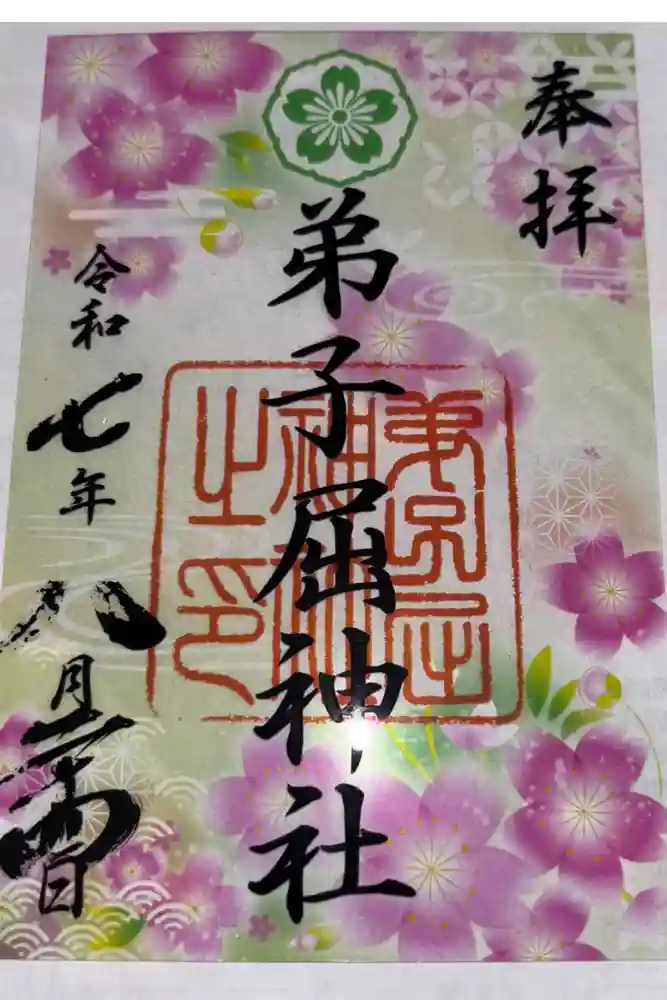 奉拝
弟子屈神社
弟子屈
神社
之印
令和七年八月二十四日